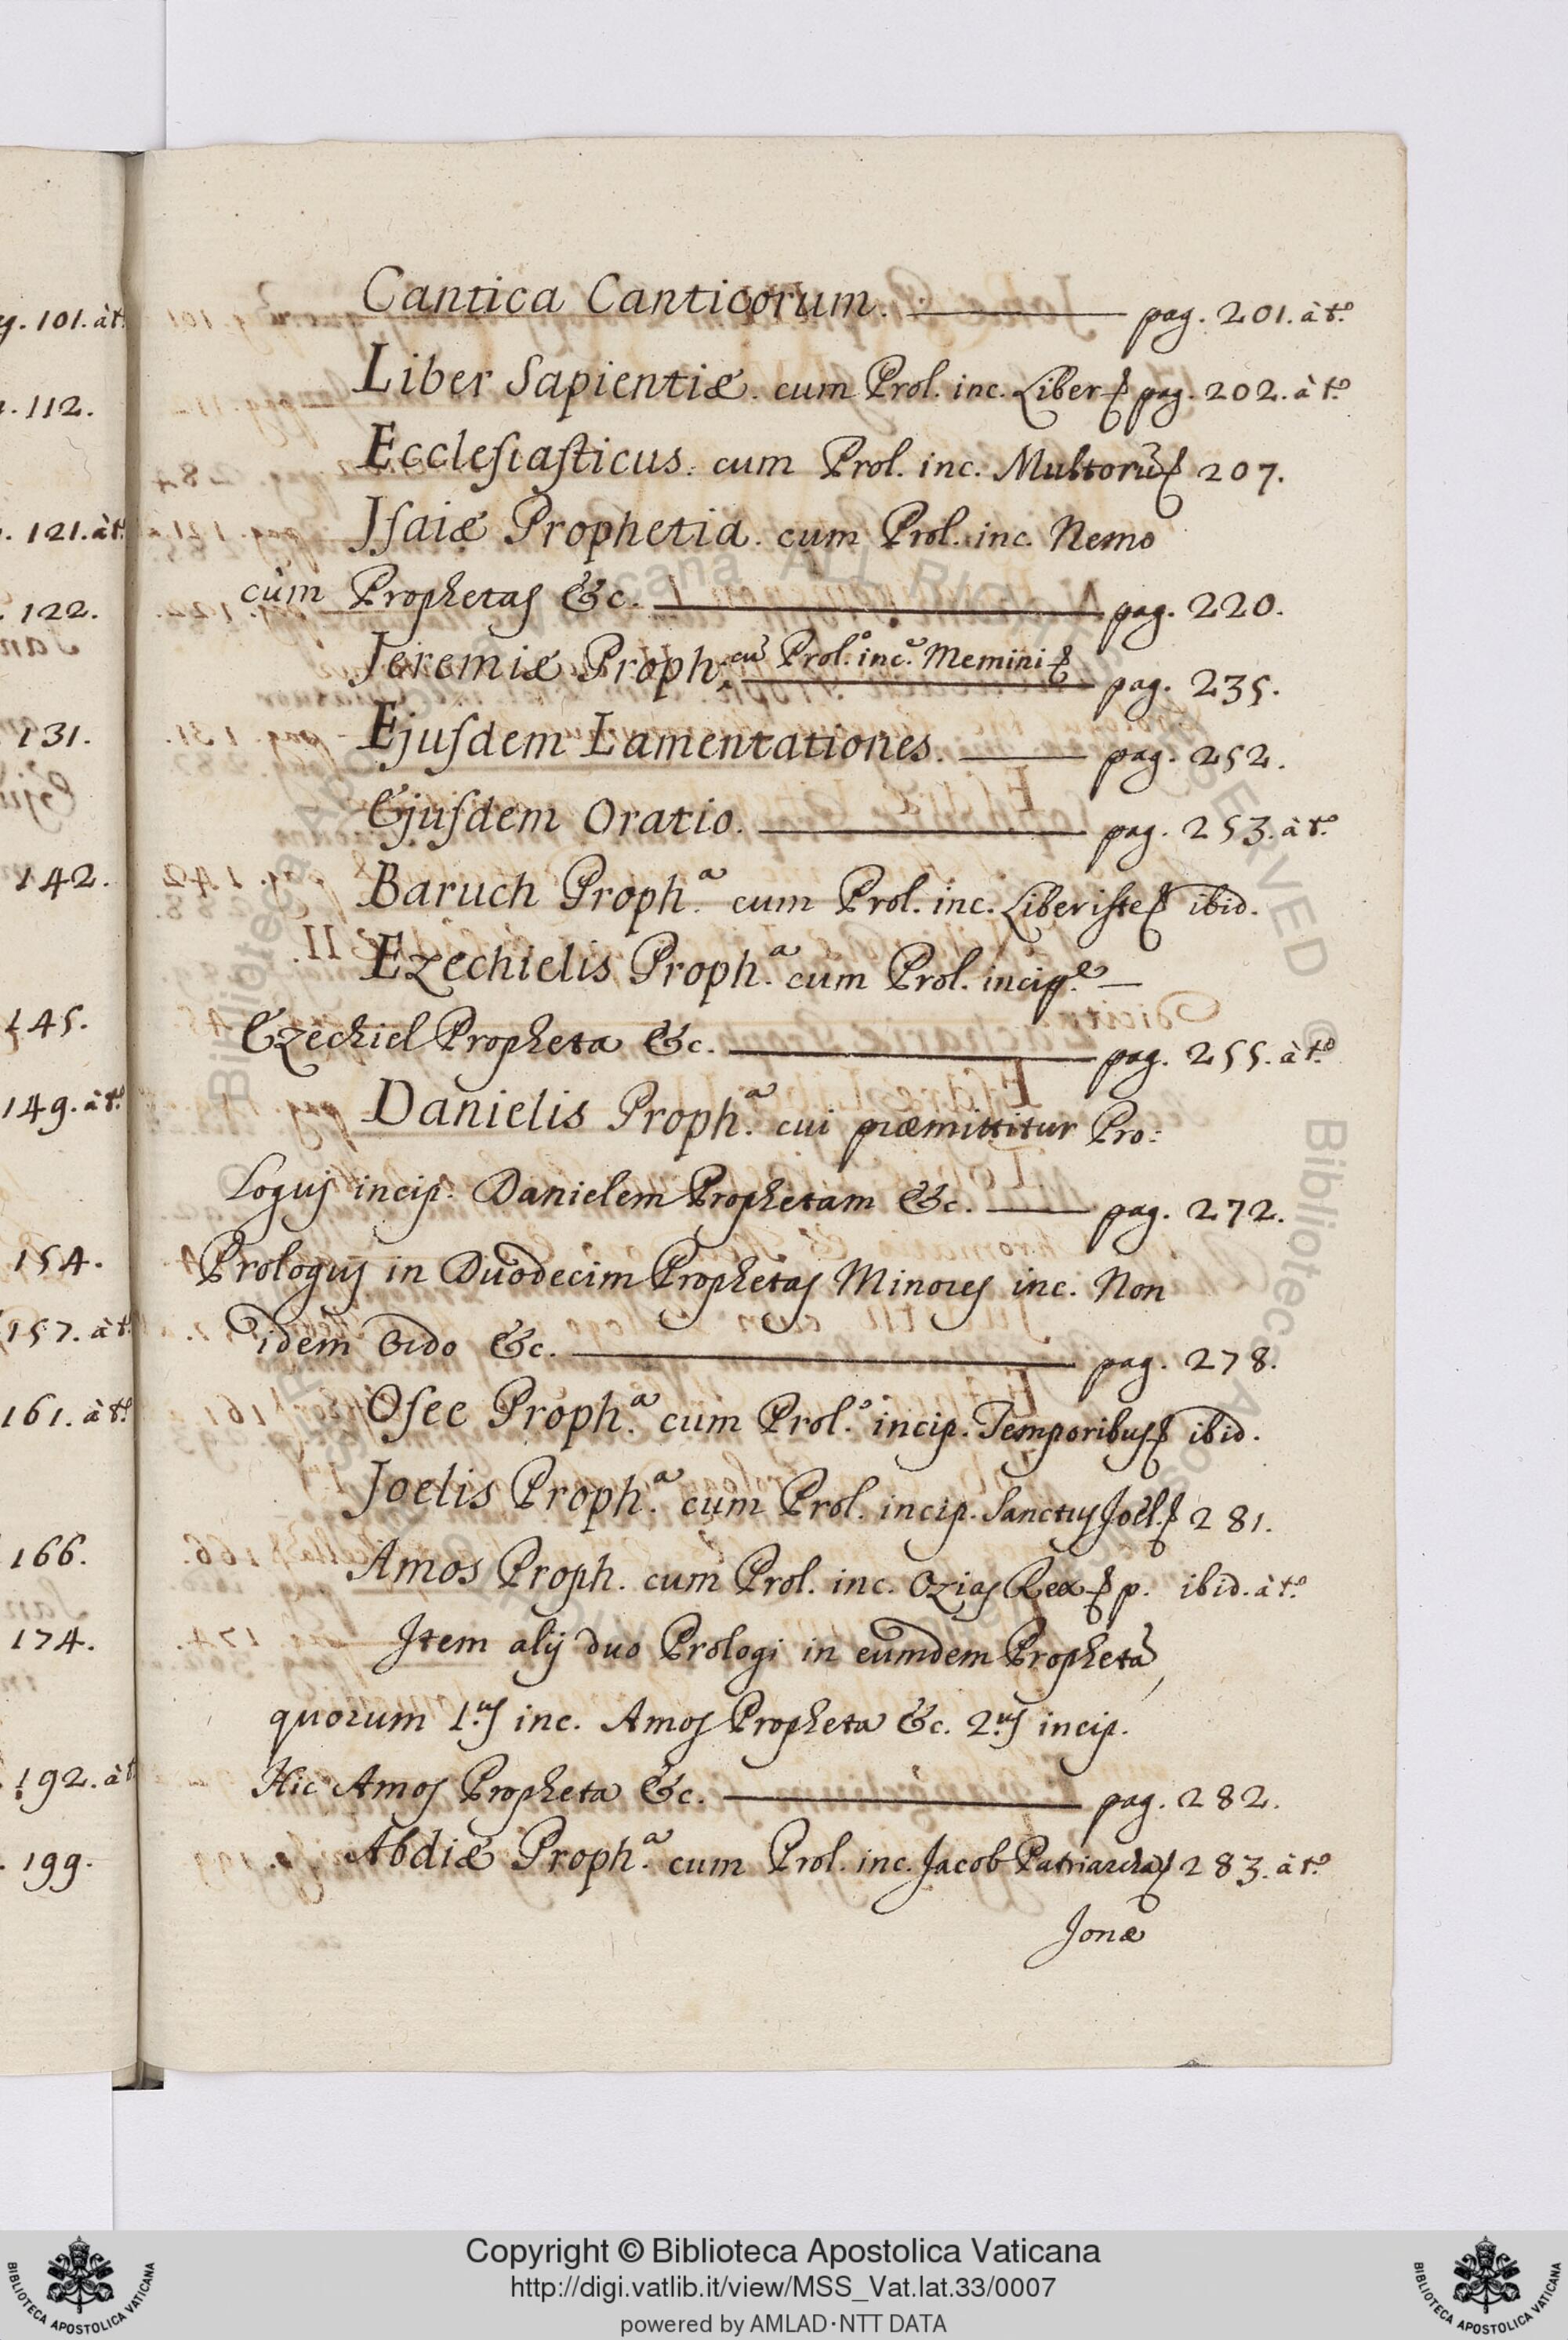 g. 101. à t.º
. 112.
. 121. à t.º
. 122.
131.
142.
145.
149. à t.º
154.
157. à t.º
161. à t.º
166.
174.
192. à t.
. 199.
Cantica Canticorum. pag. 201. à t.º
Liber Sapientiæ. cum Prol. inc. Liber & pag. 202. à t.º
Eccleſiaſticus. cum Prol. inc. Multorũ & 207.
Jſaiæ Prophetia. cum Prol. inc. Nemo
cùm Prophetas &c. pag. 220.
Jeremiæ Proph. cũ Prol.º inc.e Memini & pag. 235.
Ejuſdem Lamentationes. pag. 252.
Ejuſdem Oratio. pag. 253. à t.º
Baruch Proph.a cum Prol. inc. Liber iſte & ibid.
Ezechielis Proph.a cum Prol. incip.e —
Ezechiel Propheta &c. pag. 255. à t.º
Danielis Proph.a cui præmittitur Pro:
logus incip. Danielem Prophetam &c. pag. 272.
Prologus in Duodecim Prophetas Minores inc. Non
idem Ordo &c. pag. 278.
Oſee Proph.a cum Prol.º incip. Temporibus & ibid.
Joelis Proph.a cum Prol. incip. Sanctus Joèl. & 281.
Amos Proph. cum Prol. inc. Ozias Rex & p. ibid. à t.º
Jtem alij duo Prologi in eumdem Prophetã,
quorum 1.us inc. Amos Propheta &c. 2.us incip.
Hic Amos Propheta &c. pag. 282.
Abdiæ Proph.a cum Prol. inc. Jacob Patriarcha & 283. à t.º
Jonæ
Copyright © Biblioteca Apostolica Vaticana
http://digi.vatlib.it/view/MSS_Vat.lat.33/0007
powered by AMLAD·NTT DATA
BIBLIOTECA APOSTOLICA VATICANA
BIBLIOTECA APOSTOLICA VATICANA